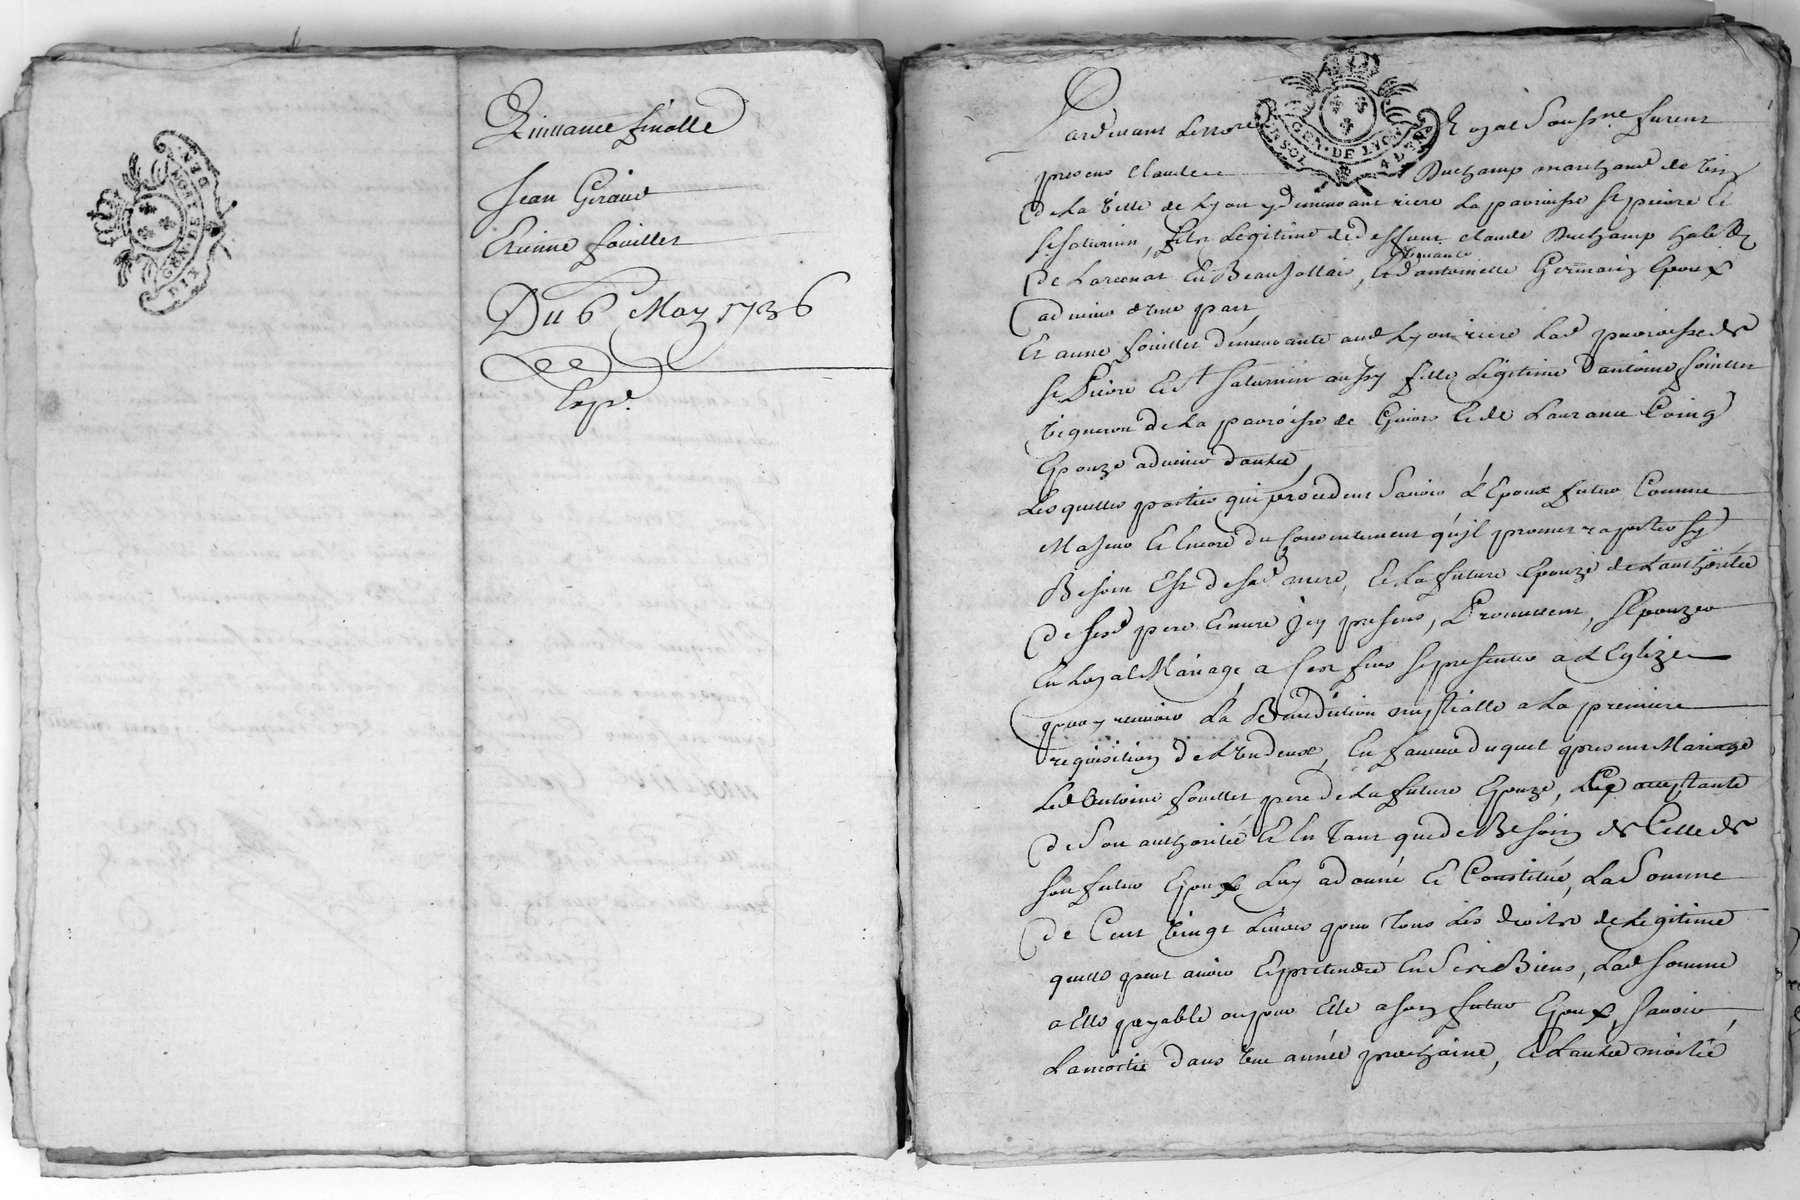 Quittance finalle
Jean Giraud
Etienne fouillet
Du 6 May 1736
Exp.
GEN. DE LYON
DIX DEN.
GEN. DE LYON
SOL 4 DEN.
Pardevant Le no.re Royal Sousne furent
presens claude Duchamp marchand de vin
de La ville de Lyon y demeurant riere La parroisse st pierre Le
st saturnin, fils Legitime de deffunt claude Duchamp hab.
de Larcenat En Beaujollais, Et d'antoinette vivante Germain Epoux
advenir d'une part,
Et anne fouillet demeurante aud Lyon riere Lad parroisse de
st Pierre Et st saturnin aussy fille Legitime d'antoine fouillet
vigneron de La parroisse de Givors Et de Laurance Coing
Epouze advenir d'autre,
Lesquelles parties qui procedent Sauoir L'Epoux futur Comme
Majeur Et Encore du Consentement qu'jl promet raporter sy
Besoin Est de sad mere, Et La future Epouze de L'authoritée
de sesd pere Et mere jcy presens, Promettent s'Epouzer
En Loyal Mariage, a Cest fins se presenter a L'Eglize
pour y recevoir La Benediction nuptialle a La premiere
requisition de L'un deux, En faveur duquel present Mariage
Led Antoine fouillet pere de La future Epouze, acceptante
de Son authoritée Et En Tant que de Besoin de Celle de
son futur Epoux Luy a donné Et Constitué, La Somme
de Cent vingt Livres pour Tous Les droits de Legitime
quelle peut avoir Et pretendre En Ses Biens, Lad somme
a Elle payable ou pour Elle a son futur Epoux, sauoir
La moitié dans une année prochaine, Et L'autre moitié